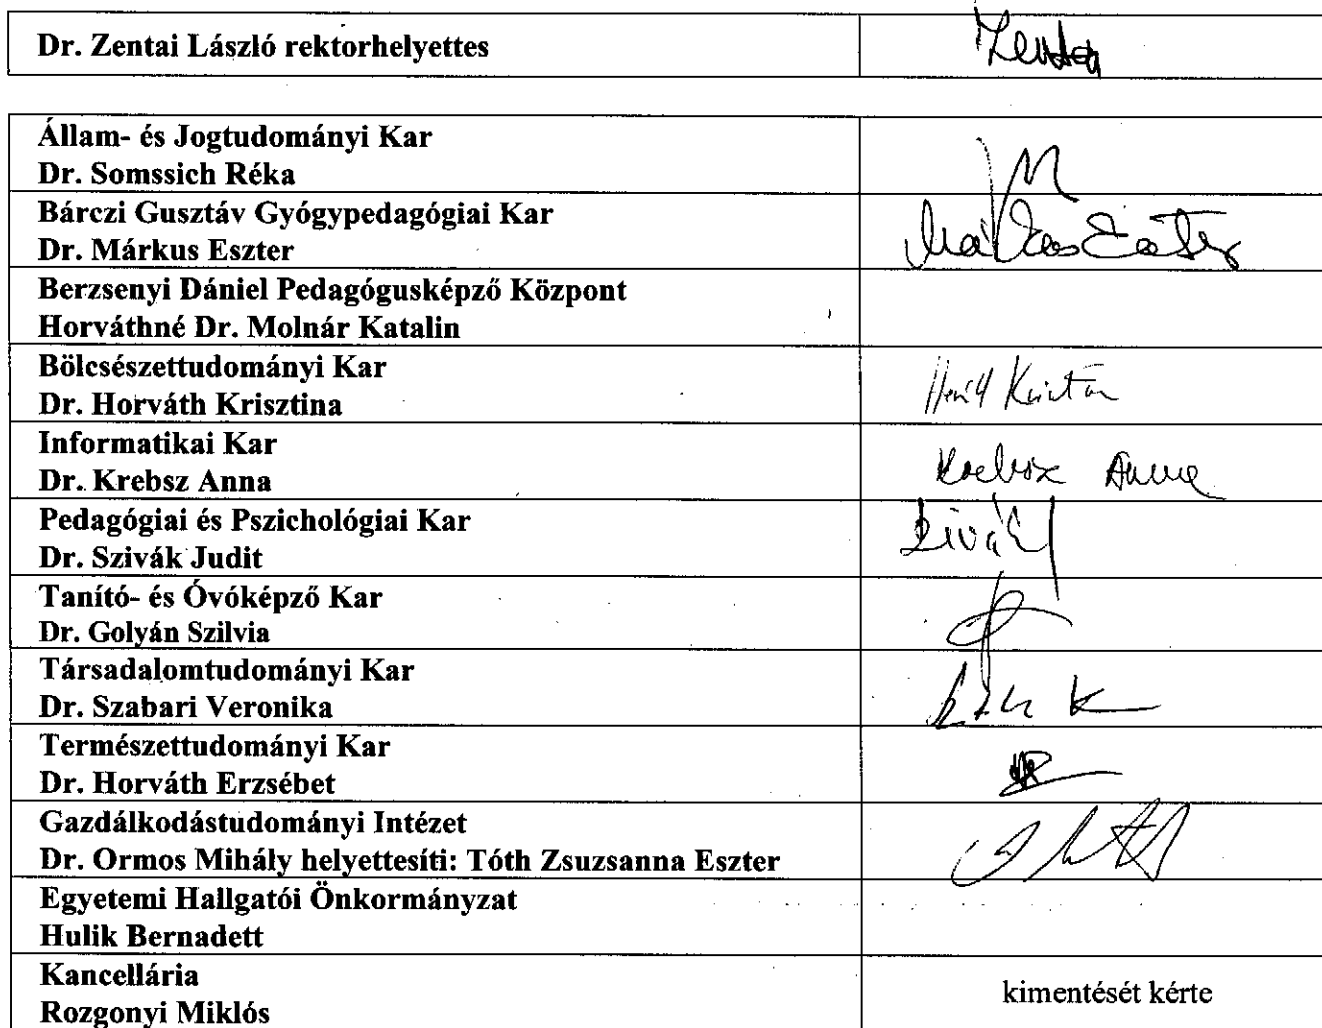 Dr. Zentai László rektorhelyettes
Zentai
Állam- és Jogtudományi Kar
Dr. Somssich Réka
Bárczi Gusztáv Gyógypedagógiai Kar
Dr. Márkus Eszter
Márkus Eszter
Berzsenyi Dániel Pedagógusképző Központ
Horváthné Dr. Molnár Katalin
Bölcsészettudományi Kar
Dr. Horváth Krisztina
Informatikai Kar
Dr. Krebsz Anna
Krebsz Anna
Pedagógiai és Pszichológiai Kar
Dr. Szivák Judit
Tanító- és Óvóképző Kar
Dr. Golyán Szilvia
Társadalomtudományi Kar
Dr. Szabari Veronika
Természettudományi Kar
Dr. Horváth Erzsébet
Gazdálkodástudományi Intézet
Dr. Ormos Mihály helyettesíti: Tóth Zsuzsanna Eszter
Egyetemi Hallgatói Önkormányzat
Hulik Bernadett
Kancellária
Rozgonyi Miklós
kimentését kérte